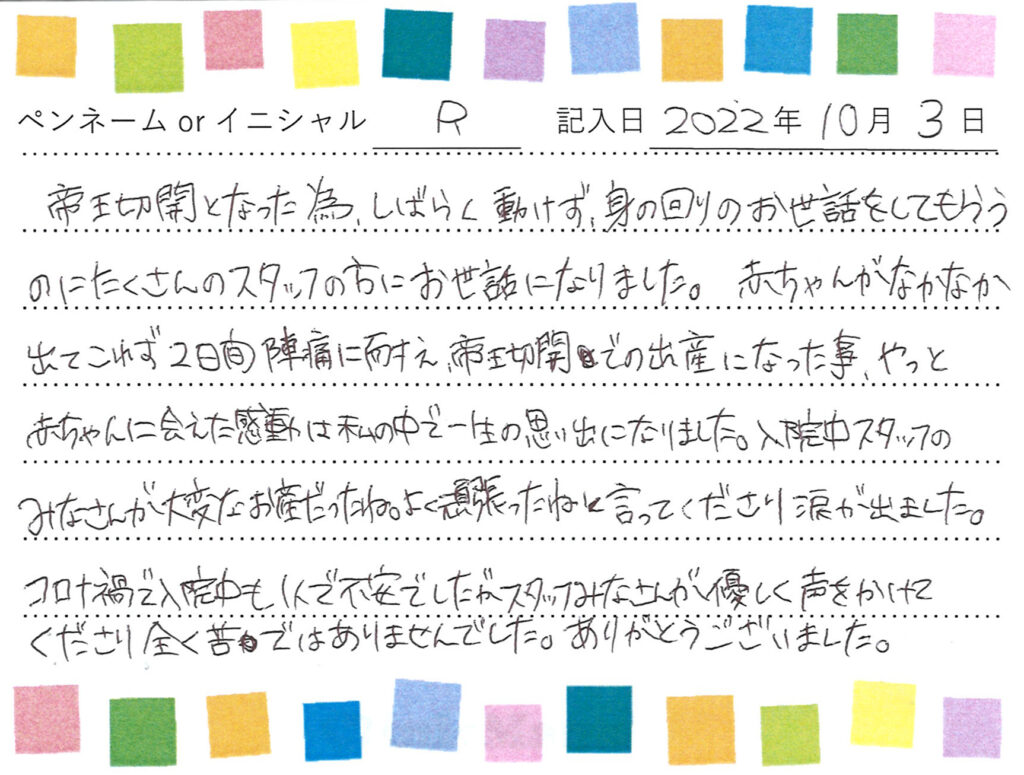 ペンネーム or イニシャル R 記入日 2022年 10月 3日
帝王切開となった為、しばらく動けず、身の回りのお世話をしてもらう
のにたくさんのスタッフの方にお世話になりました。 赤ちゃんがなかなか
出てこれず2日間陣痛に耐え、帝王切開での出産になった事、やっと
赤ちゃんに会えた感動は私の中で一生の思い出になりました。入院中スタッフの
みなさんが大変なお産だったね。よく頑張ったねと言ってくださり涙が出ました。
コロナ禍で入院中も1人で不安でしたがスタッフみなさんが優しく声をかけて
くださり全く苦ではありませんでした。ありがとうございました。